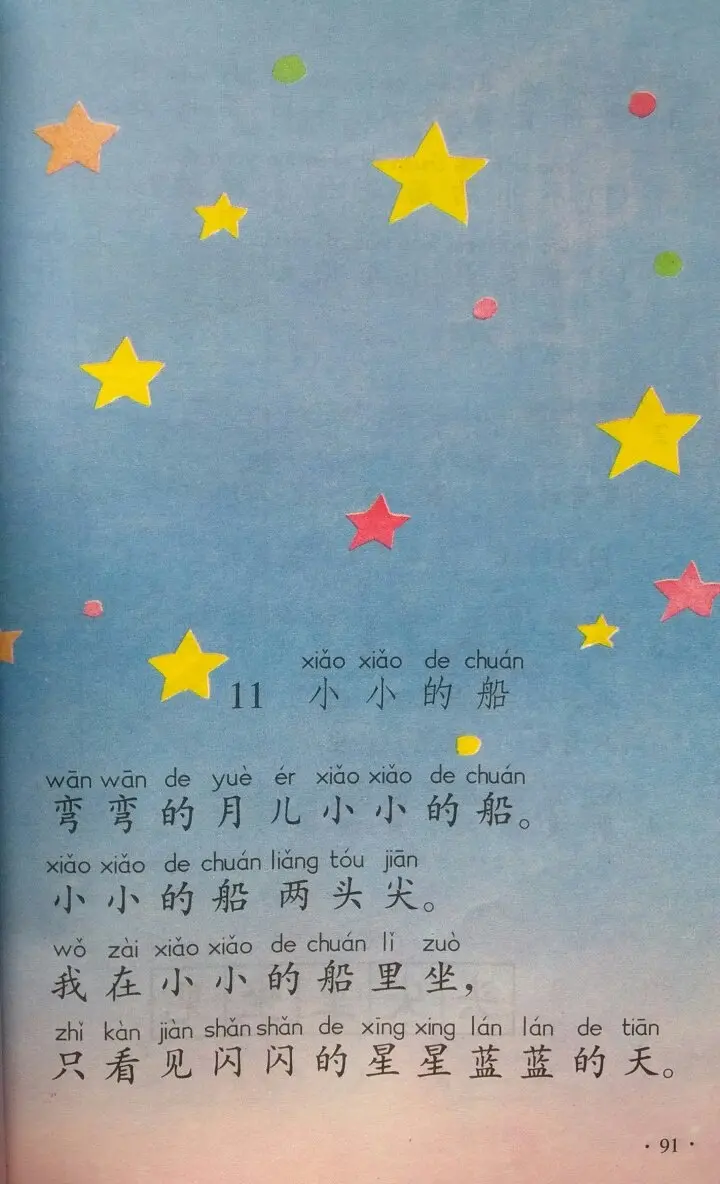 xiǎo xiǎo de chuán
11 小小的船
wān wān de yuè ér xiǎo xiǎo de chuán
弯弯的月儿小小的船。
xiǎo xiǎo de chuán liǎng tóu jiān
小小的船两头尖。
wǒ zài xiǎo xiǎo de chuán lǐ zuò
我在小小的船里坐，
zhǐ kàn jiàn shǎn shǎn de xīng xing lán lán de tiān
只看见闪闪的星星蓝蓝的天。
· 91 ·